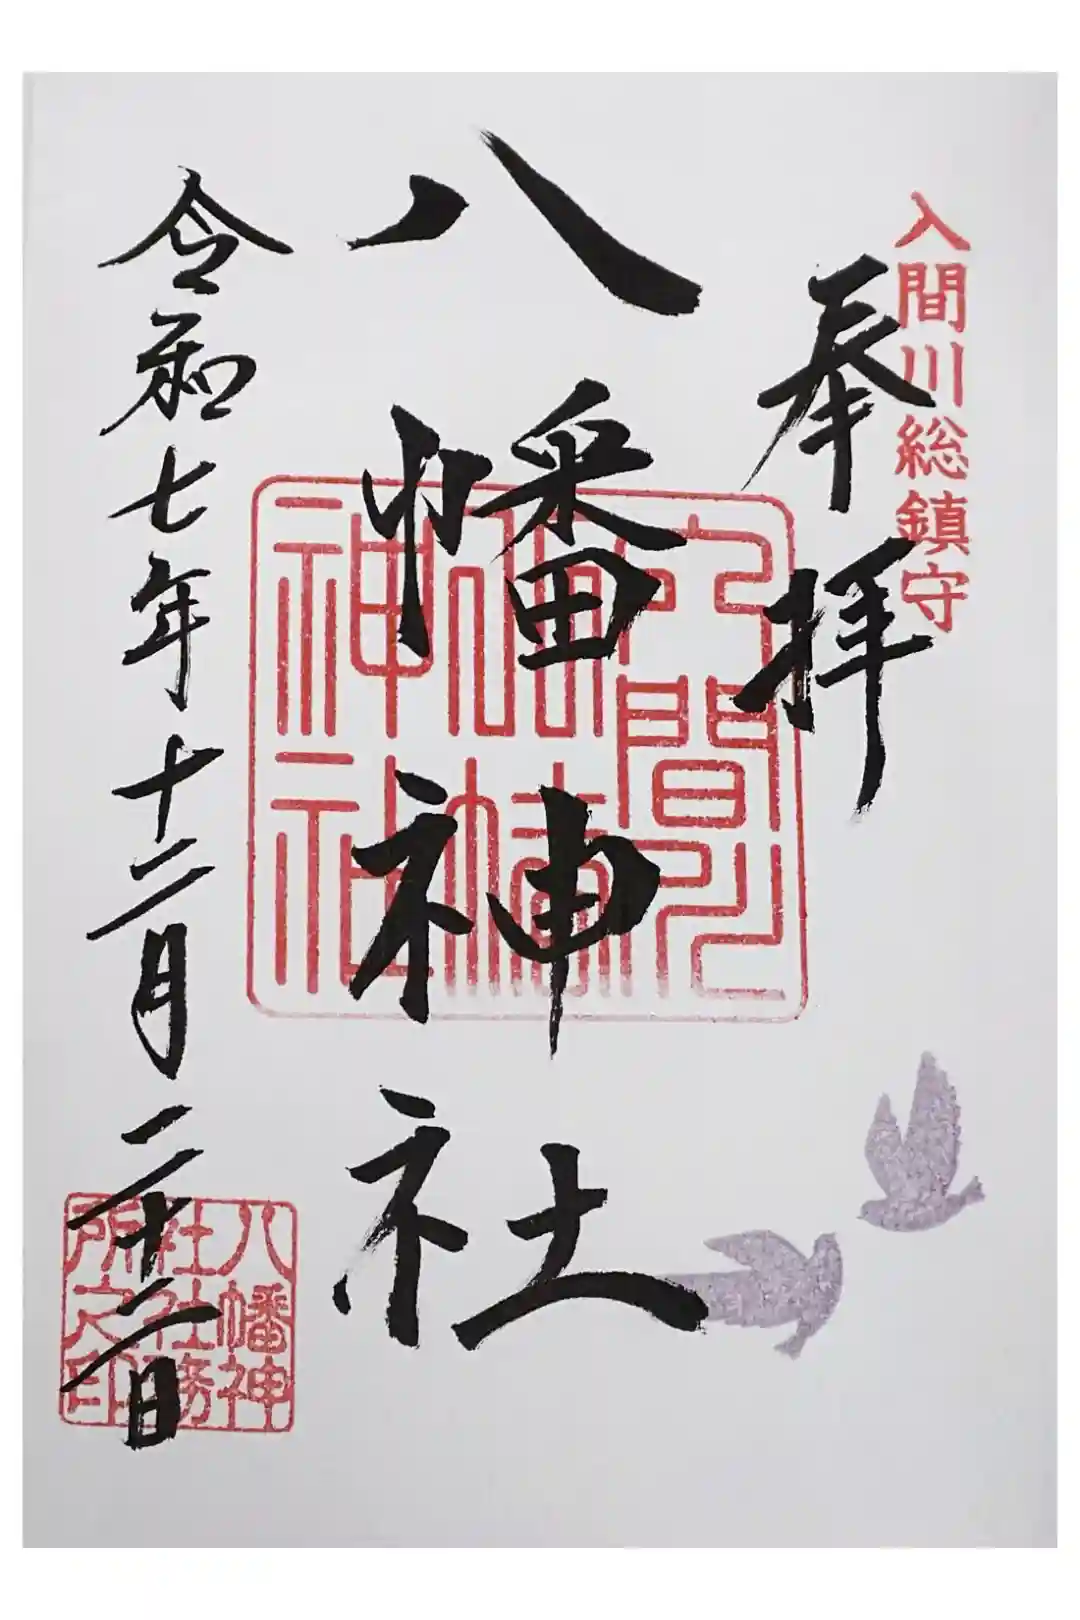 入間川総鎮守
奉拝
八幡神社
令和七年十二月二十二日
入間川
八幡
神社
八幡神
社社務
所之印